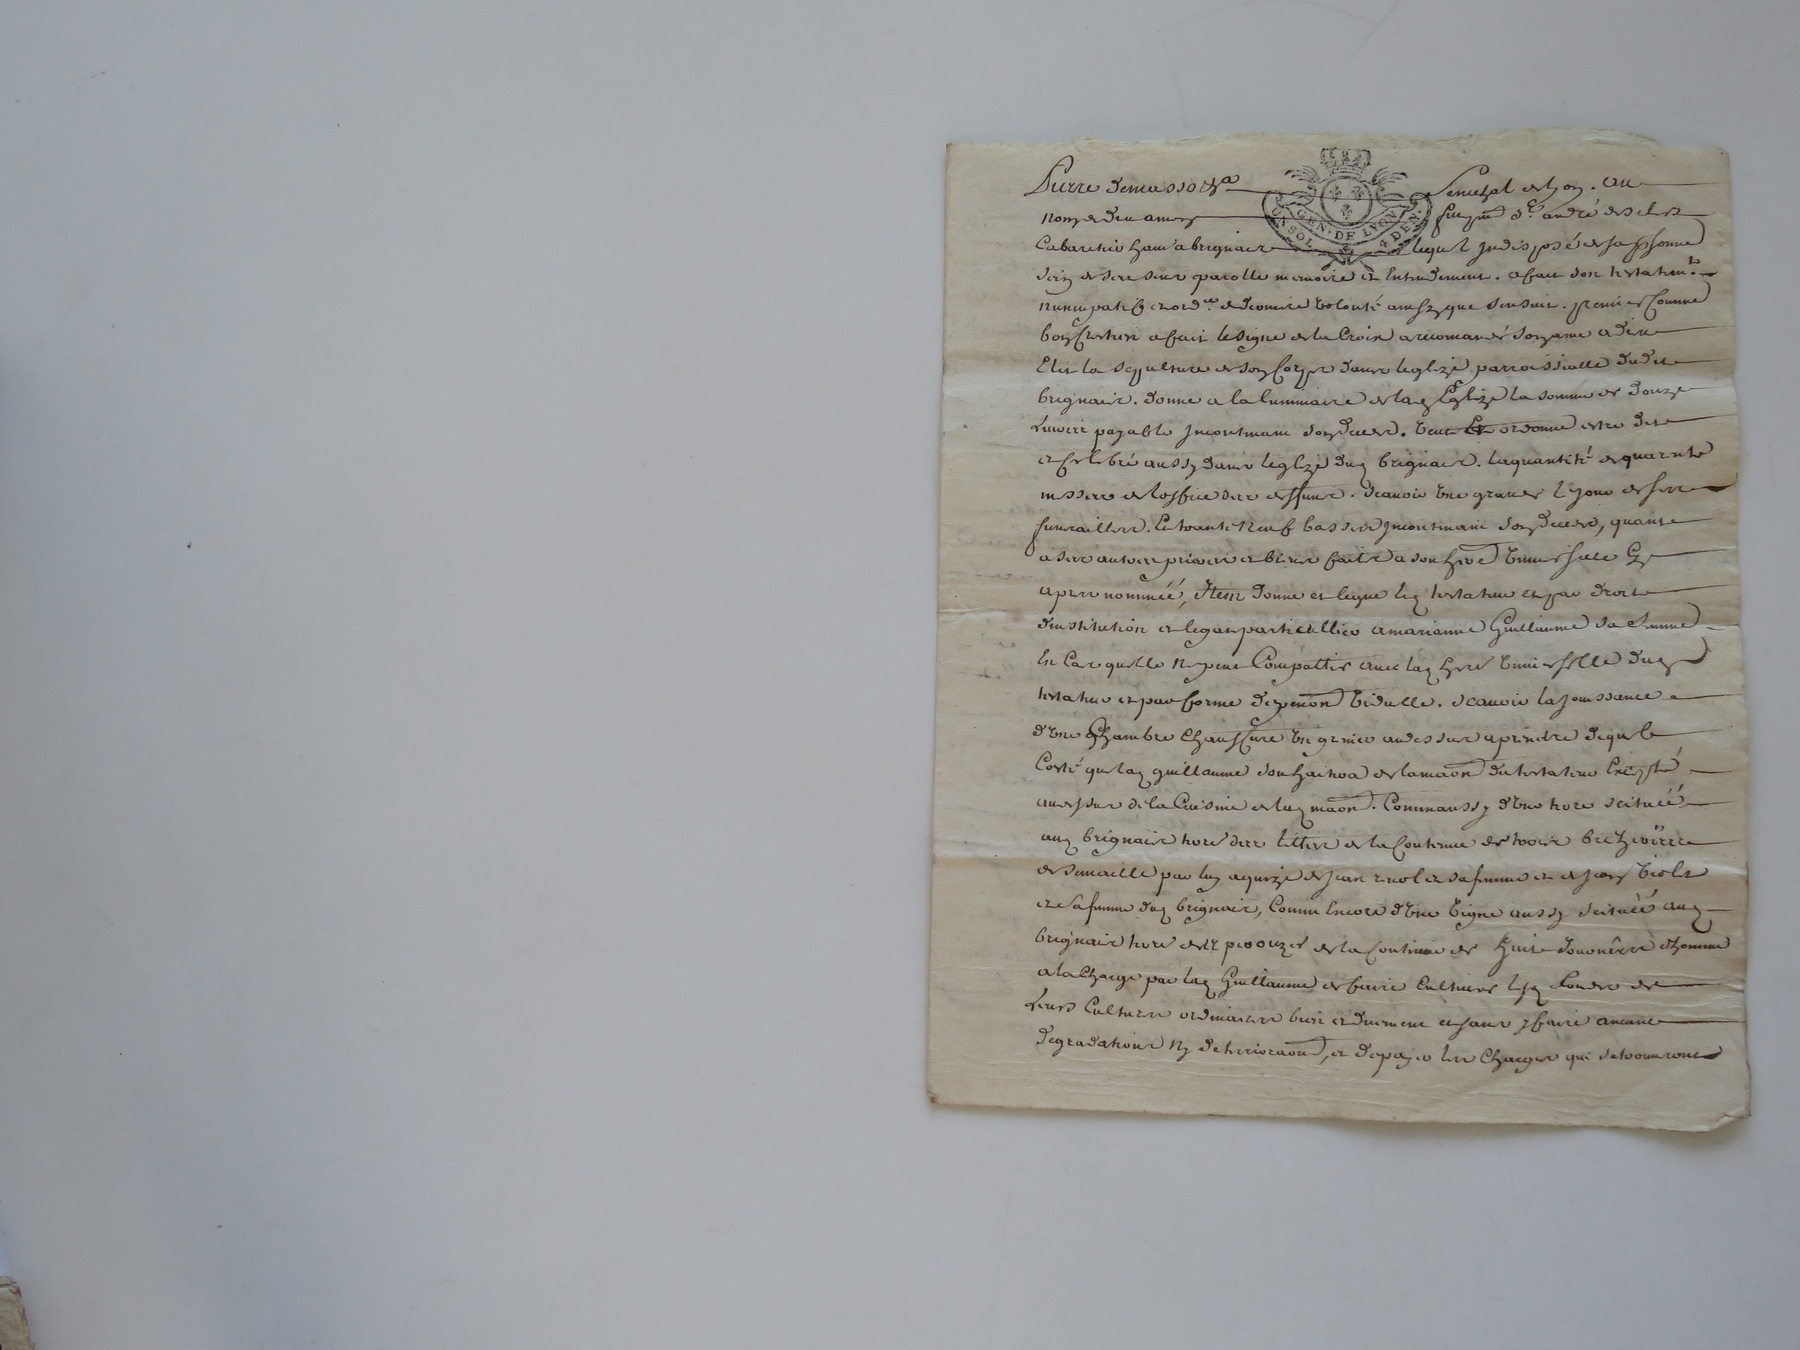 Pierre demasso &a Senechal de Lyon. au
GEN. DE LYON
4 DEN.
nom de dieu amen fut pnt sr andré
Cabaretier hant a brignais lequel Indisposé de sa psonne
sain de ses sens parolle memoire et Entendement. a fait son testament
nuncupatif et ordce de derniere volonté ainsy que sensuit. premier Comme
bon Cretien a fait le signe de la Croix a recomandé son ame a dieu
Elit la sepulture de son Corps dans leglize parroissialle dudit
brignais. donne a la luminaire de lad Eglize la somme de douze
Livres payable Incontinant son deced. veut et ordonne estre dit
et Celebré aussy dans leglize dud brignais. la quantité de quarante
messes de loffice des deffunt. scavoir une grande le jour de ses
funeraillies. Et trante neuf basses Incontinant son deced, quant
a ses autres prieres et bienfaits a son here universelle Cy
apres nommée, Item donne et legue led testateur et par droit
dinstitution et legat particullier a marianne Guillaume sa femme
En Cas quelle ne peut Compattir avec lad here universelle dud
testateur et par forme de penon viduelle. scavoir la jouissance
dune Chambre Chauffure un grenier au dessus a prendre de quel
Costé que lad guillaume souhaitra de la maon du testateur Excepté
au dessus de la Cuisine de lad maon. Comm aussy dune terre scituée
aud brignais terre des de la Contenue de trois bicherées
de semaille par luy aquize de jean et sa femme et de jean violet
et sa femme dud brignais, Comm Encore dune vigne aussy scituée aud
brignais terre de la Contenue de huit journées dhomme
a la Charge par lad Guillaume de faire Cultiver lesd fonds de
Leurs Cultures ordinaires bien et duement et sans y faire aucune
degradations ny deterioraon, et de payer les Charges qui se trouveront